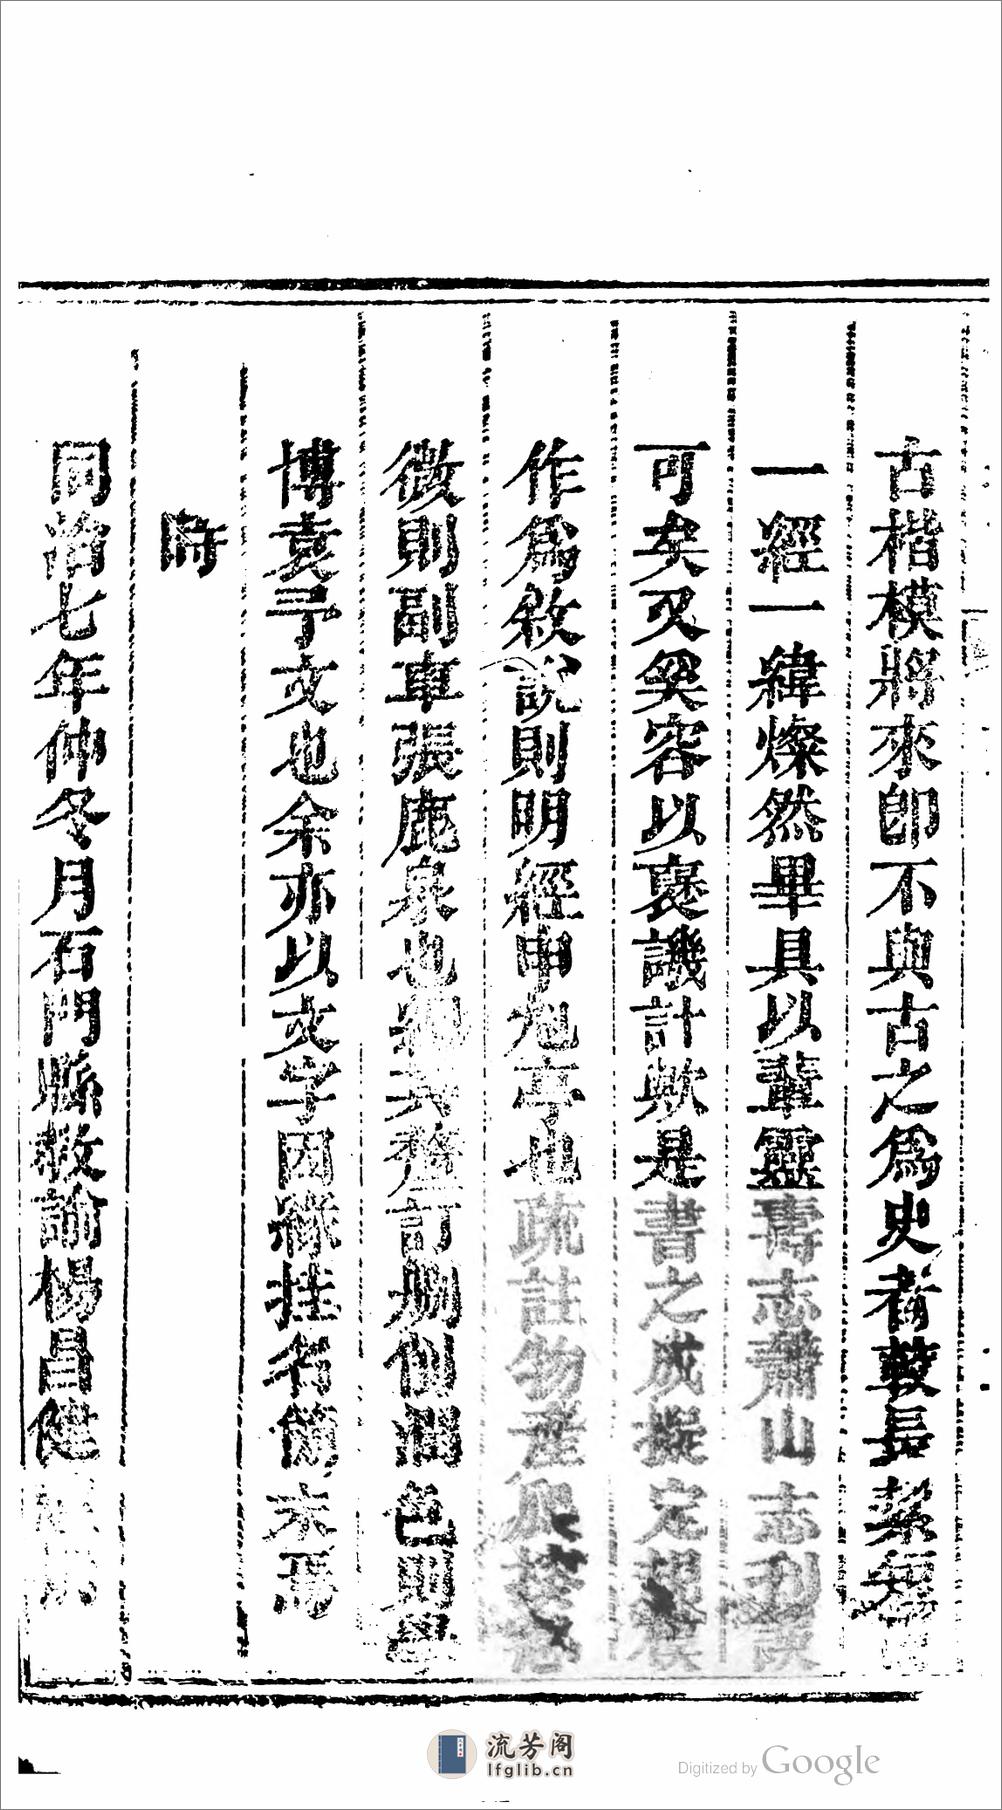 古楷模將來卽不與古之爲史者較長絜短
一經一緯燦然畢具以輩靈壽志蕭山志則誠
可矣又奚容以褒譏計歟是書之成擬定規模
作爲敘說則明經申旭亭也疏註物產爬搔
微則副車張鹿泉也網其釐訂刪創潤色則學
博袁予文也余亦以文字因緣挂名簡末焉
時
同治七年仲冬月石門縣教諭楊昌健
流芳阁
lfglib.cn
Digitized by Google